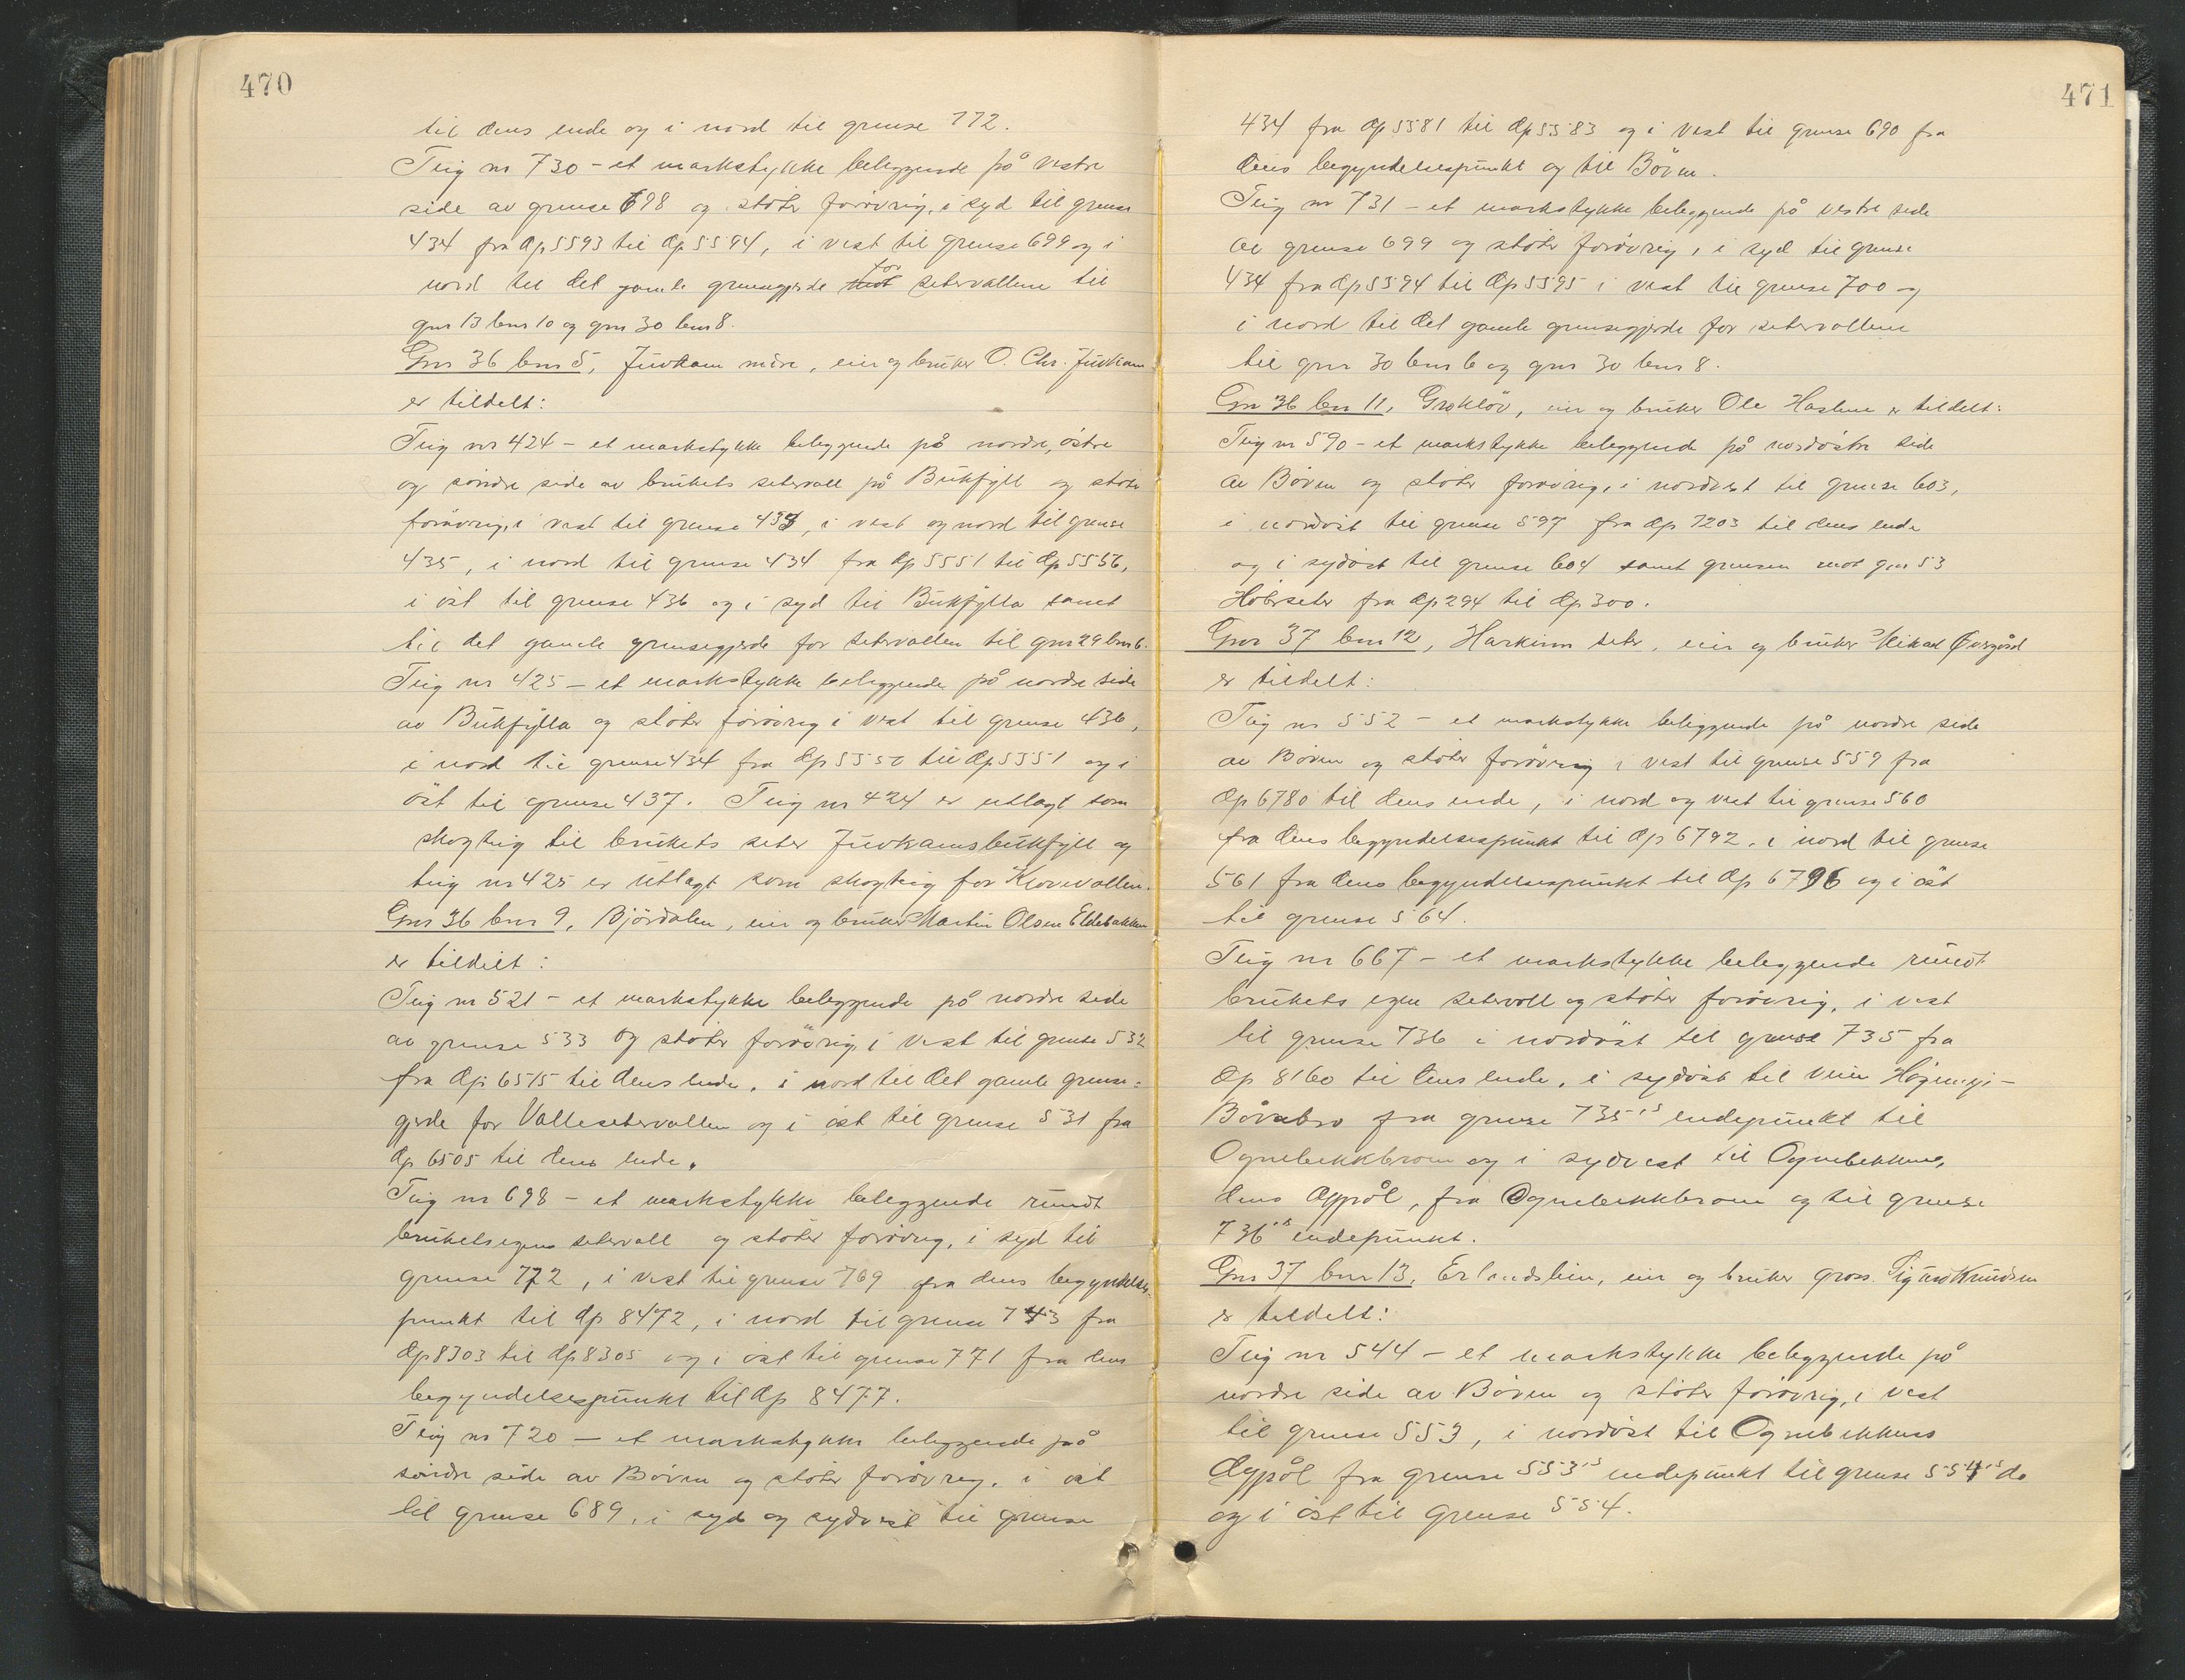 470
til dens ende og i nord til grense 772.
Teig nr 730 - et markstykke beliggende på vestre
side av grense 698 og støter forøvrig, i syd til grense
434 fra Dp 5593 til Dp 5594, i vest til grense 699 og i
nord til det gamle grensegjerde mot for setervallene til
gnr 13 bnr 10 og gnr 30 bnr 8.
Gnr 36 bnr 5, Juvkam nedre, eier og bruker O. Chr. Juvkam
er tildelt:
Teig nr 424 - et markstykke beliggende på nordre, østre
og søndre side av brukets setervoll på Bukfyll og støter
forøvrig, i vest til grense 437, i vest og nord til grense
435, i nord til grense 434 fra Dp 5551 til Dp 5556,
i øst til grense 436 og i syd til Bukfylla samt
til det gamle grensegjerde for setervallen til gnr 29 bnr 6.
Teig nr 425 - et markstykke beliggende på nordre side
av Bukfylla og støter forøvrig i vest til grense 436,
i nord til grense 434 fra Dp 5550 til Dp 5551 og i
øst til grense 437. Teig nr 424 er utlagt som
skogteig til brukets seter Juvkamsbukfyll og
teig nr 425 er utlagt som skogteig for Klovevollen.
Gnr 36 bnr 9, Bjørdalen, eier og bruker Martin Olsen Eldebakken
er tildelt:
Teig nr 521 - et markstykke beliggende på nordre side
av grense 533 og støter forøvrig, i vest til grense 532
fra Dp 6515 til dens ende, i nord til det gamle grense=
gjerde for Vallesetervallen og i øst til grense 531 fra
Dp 6505 til dens ende.
Teig nr 698 - et markstykke beliggende rundt
brukets egen setervoll og støter forøvrig, i syd til
grense 772, i vest til grense 769 fra dens begyndelses-
punkt til Dp 8472, i nord til grense 743 fra
Dp 8303 til Dp 8305 og i øst til grense 771 fra dens
begyndelsespunkt til Dp 8477.
Teig nr 720 - et markstykke beliggende på
søndre side av Bøvra og støter forøvrig, i øst
til grense 689, i syd og sydvest til grense
471
434 fra Dp 5581 til Dp 5583 og i vest til grense 690 fra
dens begyndelsespunkt og til Bøvra.
Teig nr 731 - et markstykke beliggende på vestre side
av grense 699 og støter forøvrig, i syd til grense
434 fra Dp 5594 til Dp 5595 i vest til grense 700 og
i nord til det gamle grensegjerde for setervollene
til gnr 30 bnr 6 og gnr 30 bnr 8.
Gnr 36 bnr 11, Grokløv, eier og bruker Ole Haslene er tildelt:
Teig nr 590 - et markstykke beliggende på nordøstre side
av Bøvra og støter forøvrig, i nordvest til grense 603,
i nordøst til grense 597 fra Dp 7203 til dens ende
og i sydøst til grense 604 samt grensen mot gnr 53
Høberseter fra Dp 294 til Dp 300.
Gnr 37 bnr 12, Harkinn seter, eier og bruker Mikael Øvregård
er tildelt:
Teig nr 552 - et markstykke beliggende på nordre side
av Bøvra og støter forøvrig i vest til grense 559 fra
Dp 6780 til dens ende, i nord og vest til grense 560
fra dens begyndelsespunkt til Dp 6792, i nord til grense
561 fra dens begyndelsespunkt til Dp 6796 og i øst
til grense 564.
Teig nr 667 - et markstykke beliggende rundt
brukets egen setervoll og støter forøvrig, i vest
til grense 736 i nordøst til grense 735 fra
Dp 8160 til dens ende, i sydøst til veien -
Bøvrabro fra grense 735's endepunkt til
Ognebekkbroen og i sydvest til Ognebekkens,
dens dyppål, fra Ognebekkbroen og til grense
736's endepunkt.
Gnr 37 bnr 13, Erlandslien, eier og bruker gross. Sigurd Knudsen
er tildelt:
Teig nr 544 - et markstykke beliggende på
nordre side av Bøvra og støter forøvrig, i vest
til grense 553, i nordøst til Ognebekkens
dyppål fra grense 553's endepunkt til grense 554's do
og i øst til grense 554.